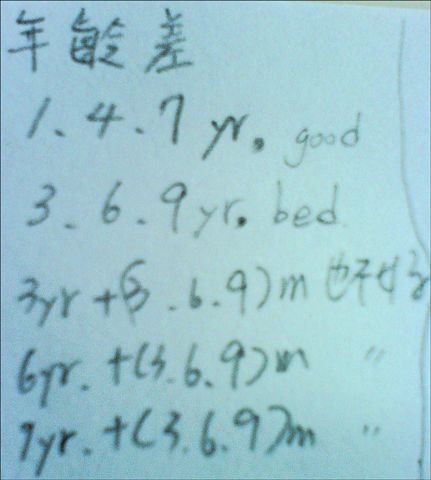 年齡差
1、4、7 yr. good
3、6、9 yr. bed
3yr + (3.6.9)m 也不好
6yr. + (3.6.9)m 〃
9yr. + (3.6.9)m 〃